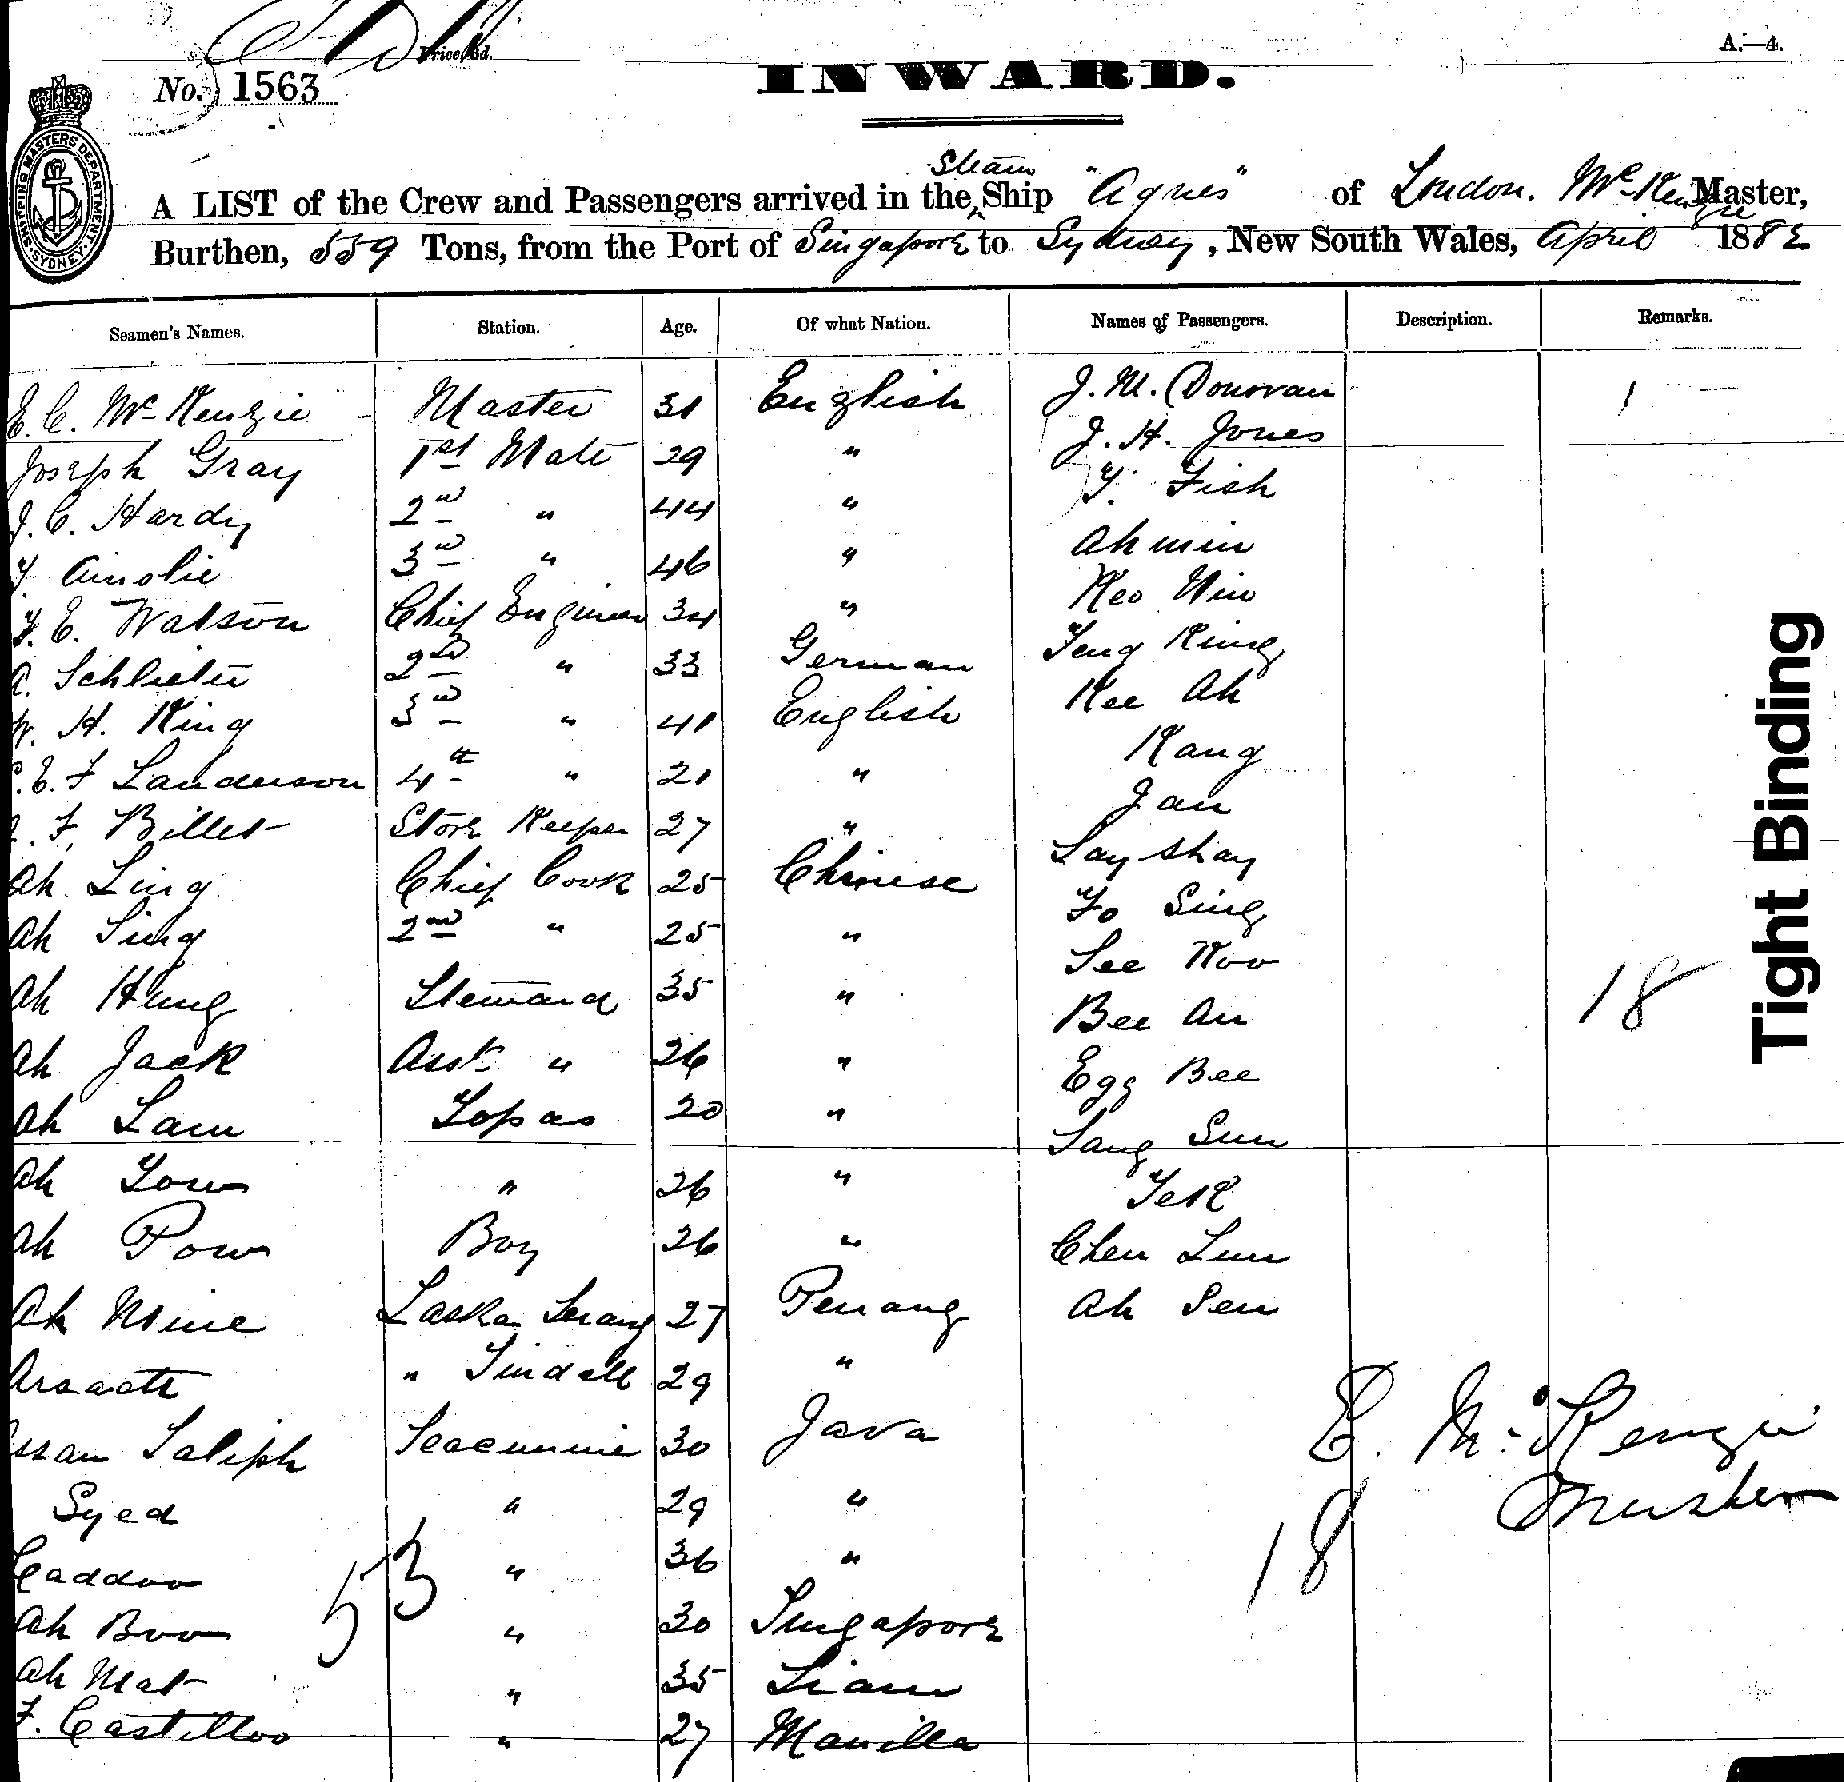 Price 6d.
A.—4.
No. 1563
INWARD.
SHIPPING MASTERS DEPARTMENT SYDNEY
Steam
A LIST of the Crew and Passengers arrived in the Ship "Agnes" of London. Mc Kenzie Master,
Burthen, 559 Tons, from the Port of Singapore to Sydney, New South Wales, April 1882
Seamen's Names. Station. Age. Of what Nation. Names of Passengers. Description. Remarks.
E. C. Mc Kenzie Master 31 English J. M. Donovan 1
Joseph Gray 1st Mate 29 " J. H. Jones
J. C. Hardy 2nd " 44 " T. Fish
T. Ainslie 3rd " 46 " Ah min
T. E. Watson Chief Engineer 34 " Keo Win
A. Schlieter 2nd " 33 German Teng King
W. H. King 3rd " 41 English Kee Ah
E. F Sanderson 4th " 21 " Kang
F. Billet Store Keeper 27 " Jan
Ah Ling Chief Cook 25 Chinese Lay Shay
Ah Sing 2nd " 25 " Fo Sing
Ah Hung Steward 35 " See Koo 18
Ah Jack Asst. " 26 " Bee An
Ah Lam Topas 20 " Egg Bee
Ah Yow " 26 " Sang Sun
Ah Pow Boy 26 " Tek
Ah Mine Laskar Serang 27 Penang Chen Lum
Arsadt " Tindall 29 " Ah Sen
Assan Saliph Seacunnie 30 Java E. Mc Kenzie
Syed " 29 " Master
Caddoo " 36 " 18
53
Ah Boo " 30 Singapore
Ah Mat " 35 Siam
F. Castilloo " 27 Manilla
Tight Binding